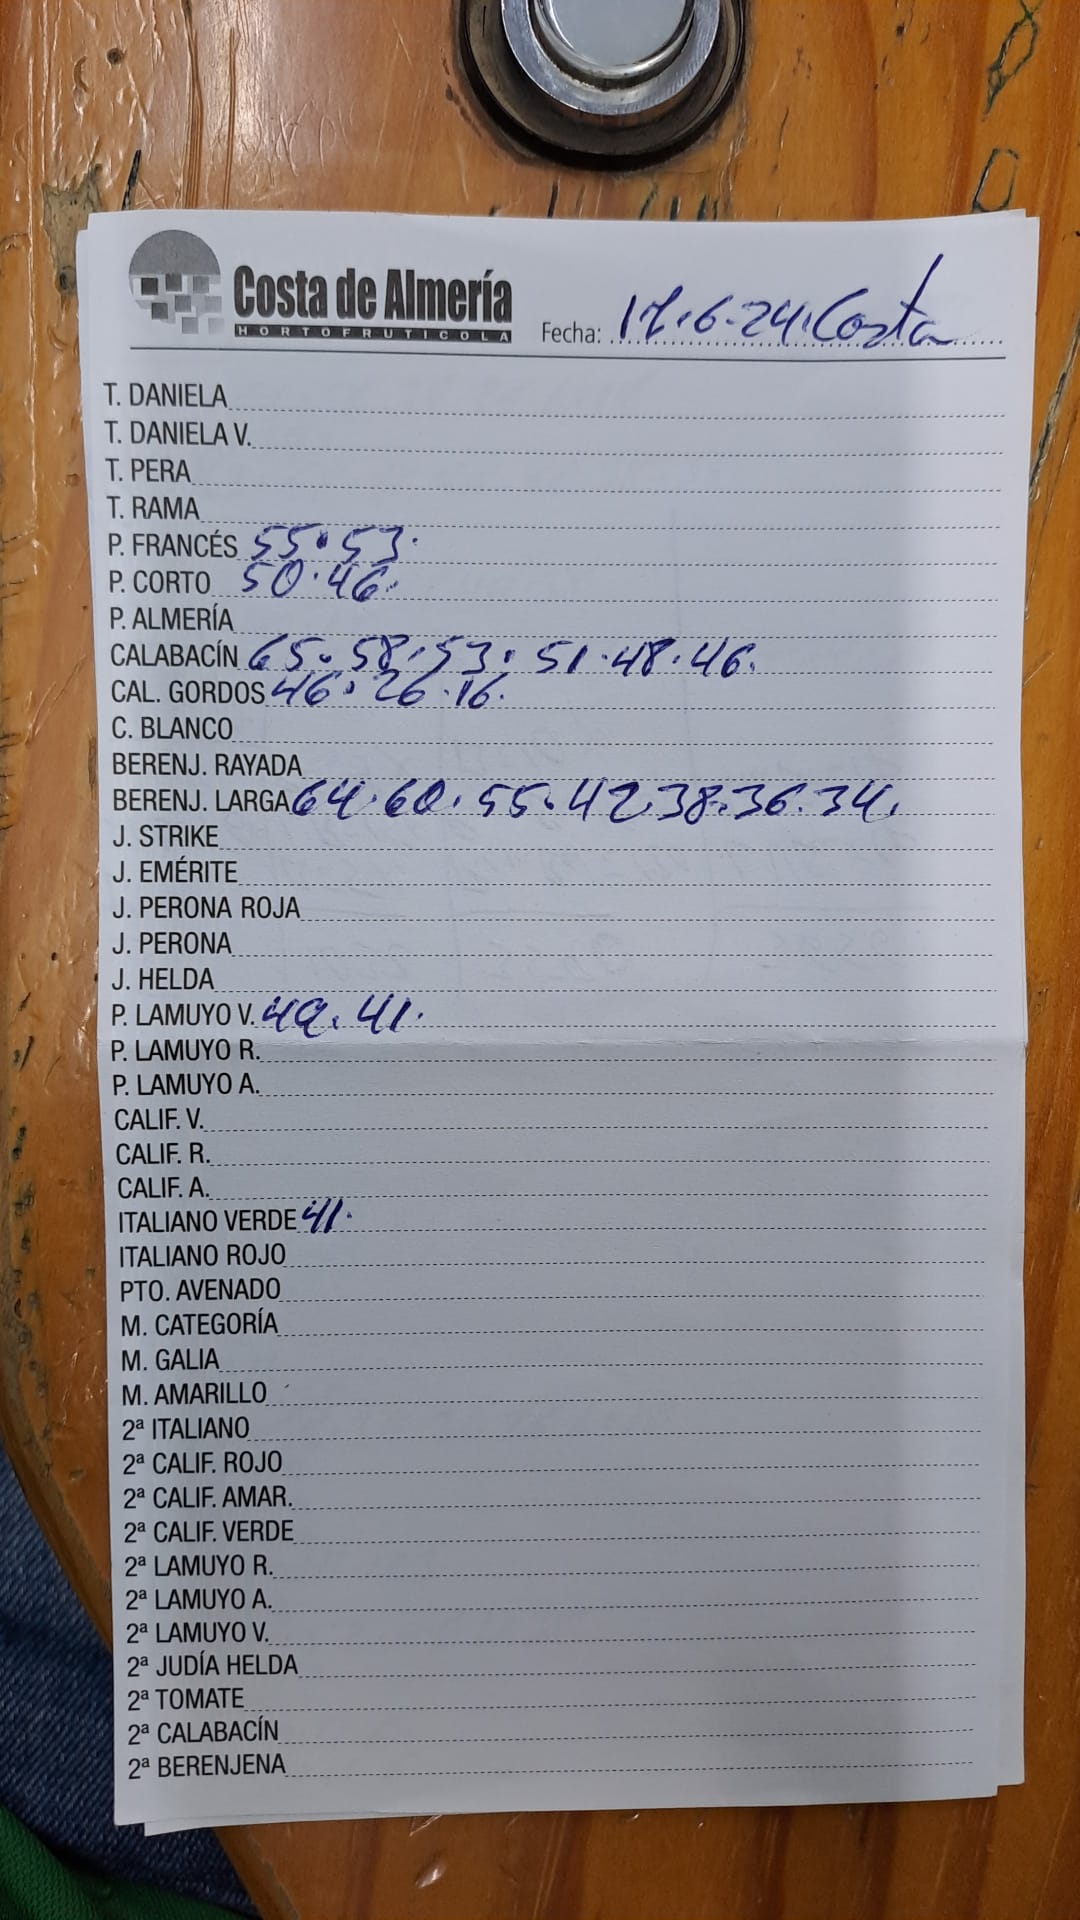 Costa de Almería
HORTOFRUTICOLA
Fecha: 17.6.24. Costa
T. DANIELA
T. DANIELA V.
T. PERA
T. RAMA
P. FRANCÉS 55. 53.
P. CORTO 50. 46.
P. ALMERÍA
CALABACÍN 65. 58. 53. 51. 48. 46.
CAL. GORDOS 46. 26. 16.
C. BLANCO
BERENJ. RAYADA
BERENJ. LARGA 64. 60. 55. 42. 38. 36. 34.
J. STRIKE
J. EMÉRITE
J. PERONA ROJA
J. PERONA
J. HELDA
P. LAMUYO V. 49. 41.
P. LAMUYO R.
P. LAMUYO A.
CALIF. V.
CALIF. R.
CALIF. A.
ITALIANO VERDE 41.
ITALIANO ROJO
PTO. AVENADO
M. CATEGORÍA
M. GALIA
M. AMARILLO
2ª ITALIANO
2ª CALIF. ROJO
2ª CALIF. AMAR.
2ª CALIF. VERDE
2ª LAMUYO R.
2ª LAMUYO A.
2ª LAMUYO V.
2ª JUDÍA HELDA
2ª TOMATE
2ª CALABACÍN
2ª BERENJENA